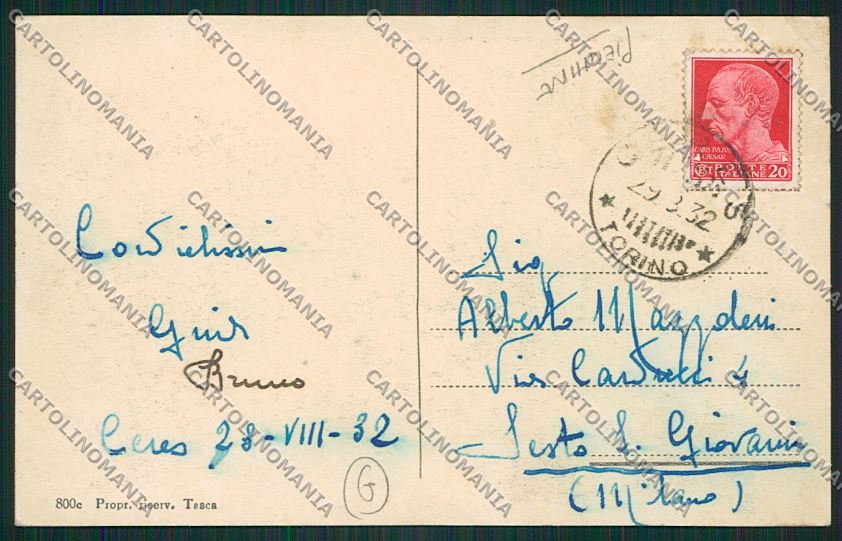 PIEGHINE
CAIVS IVLIVS
CAESAR
POSTE
ITALIANE 20
29.8.32
TORINO
Cordialissimi
Guido
Bruno
Ceres 28-VIII-32
Sig
Alberto
Via Carducci 4
Sesto S. Giovanni
(Milano)
800c Propr. riserv. Tasca
G
CARTOLINOMANIA